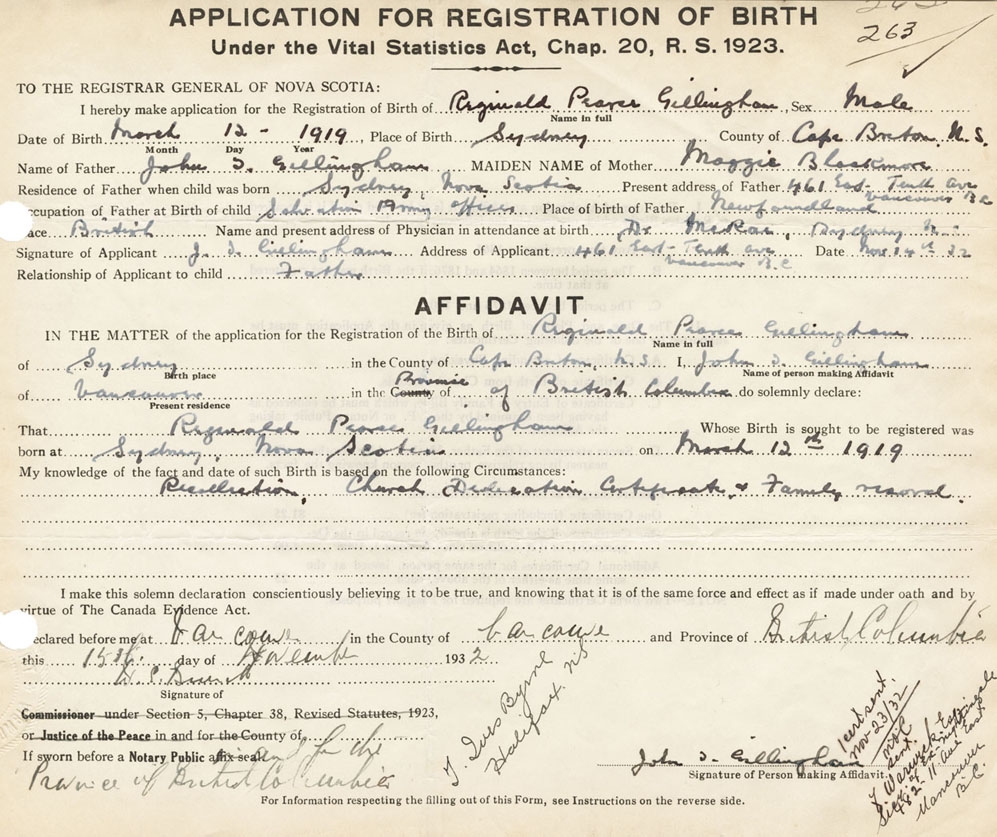 APPLICATION FOR REGISTRATION OF BIRTH
263
Under the Vital Statistics Act, Chap. 20, R. S. 1923.
TO THE REGISTRAR GENERAL OF NOVA SCOTIA:
I hereby make application for the Registration of Birth of Reginald Pearce Gillingham, Sex Male
Name in full
Date of Birth March 12 - 1919, Place of Birth Sydney County of Cape Breton N.S.
Month Day Year
Name of Father John S. Gillingham MAIDEN NAME of Mother Maggie Blackmore
Residence of Father when child was born Sydney, Nova Scotia Present address of Father 461 East Tenth ave
Vancouver BC
ccupation of Father at Birth of child Salvation Army Officer Place of birth of Father Newfoundland
ace British Name and present address of Physician in attendance at birth Dr McRae, Sydney N.S.
Signature of Applicant J. S. Gillingham Address of Applicant 461 East-Tenth ave Date Nov 14th 32
Vancouver B.C
Relationship of Applicant to child Father
AFFIDAVIT
IN THE MATTER of the application for the Registration of the Birth of Reginald Pearce Gillingham
Name in full
of Sydney in the County of Cape Breton, N.S I, John S. Gillingham
Birth place Name of person making Affidavit
Province
of Vancouver in the County of of British Columbia do solemnly declare:
Present residence
That Reginald Pearce Gillingham Whose Birth is sought to be registered was
born at Sydney, Nova Scotia on March 12th 1919
My knowledge of the fact and date of such Birth is based on the following Circumstances:
Recollection, Church Dedication Certificate & Family record.
I make this solemn declaration conscientiously believing it to be true, and knowing that it is of the same force and effect as if made under oath and by
virtue of The Canada Evidence Act.
eclared before me at Vancouver in the County of Vancouver and Province of British Columbia
this 15th day of November 1932
Signature of
Commissioner under Section 5, Chapter 38, Revised Statutes, 1923,
or Justice of the Peace in and for the County of
If sworn before a Notary Public affix seal. in and for the
Province of British Columbia
T. Ives Byrne
Halifax. NS
John S. Gillingham
Signature of Person Making Affidavit.
1 cert sent.
Nov 23/32
Vancouver
B.C.
For Information respecting the filling out of this Form, see Instructions on the reverse side.